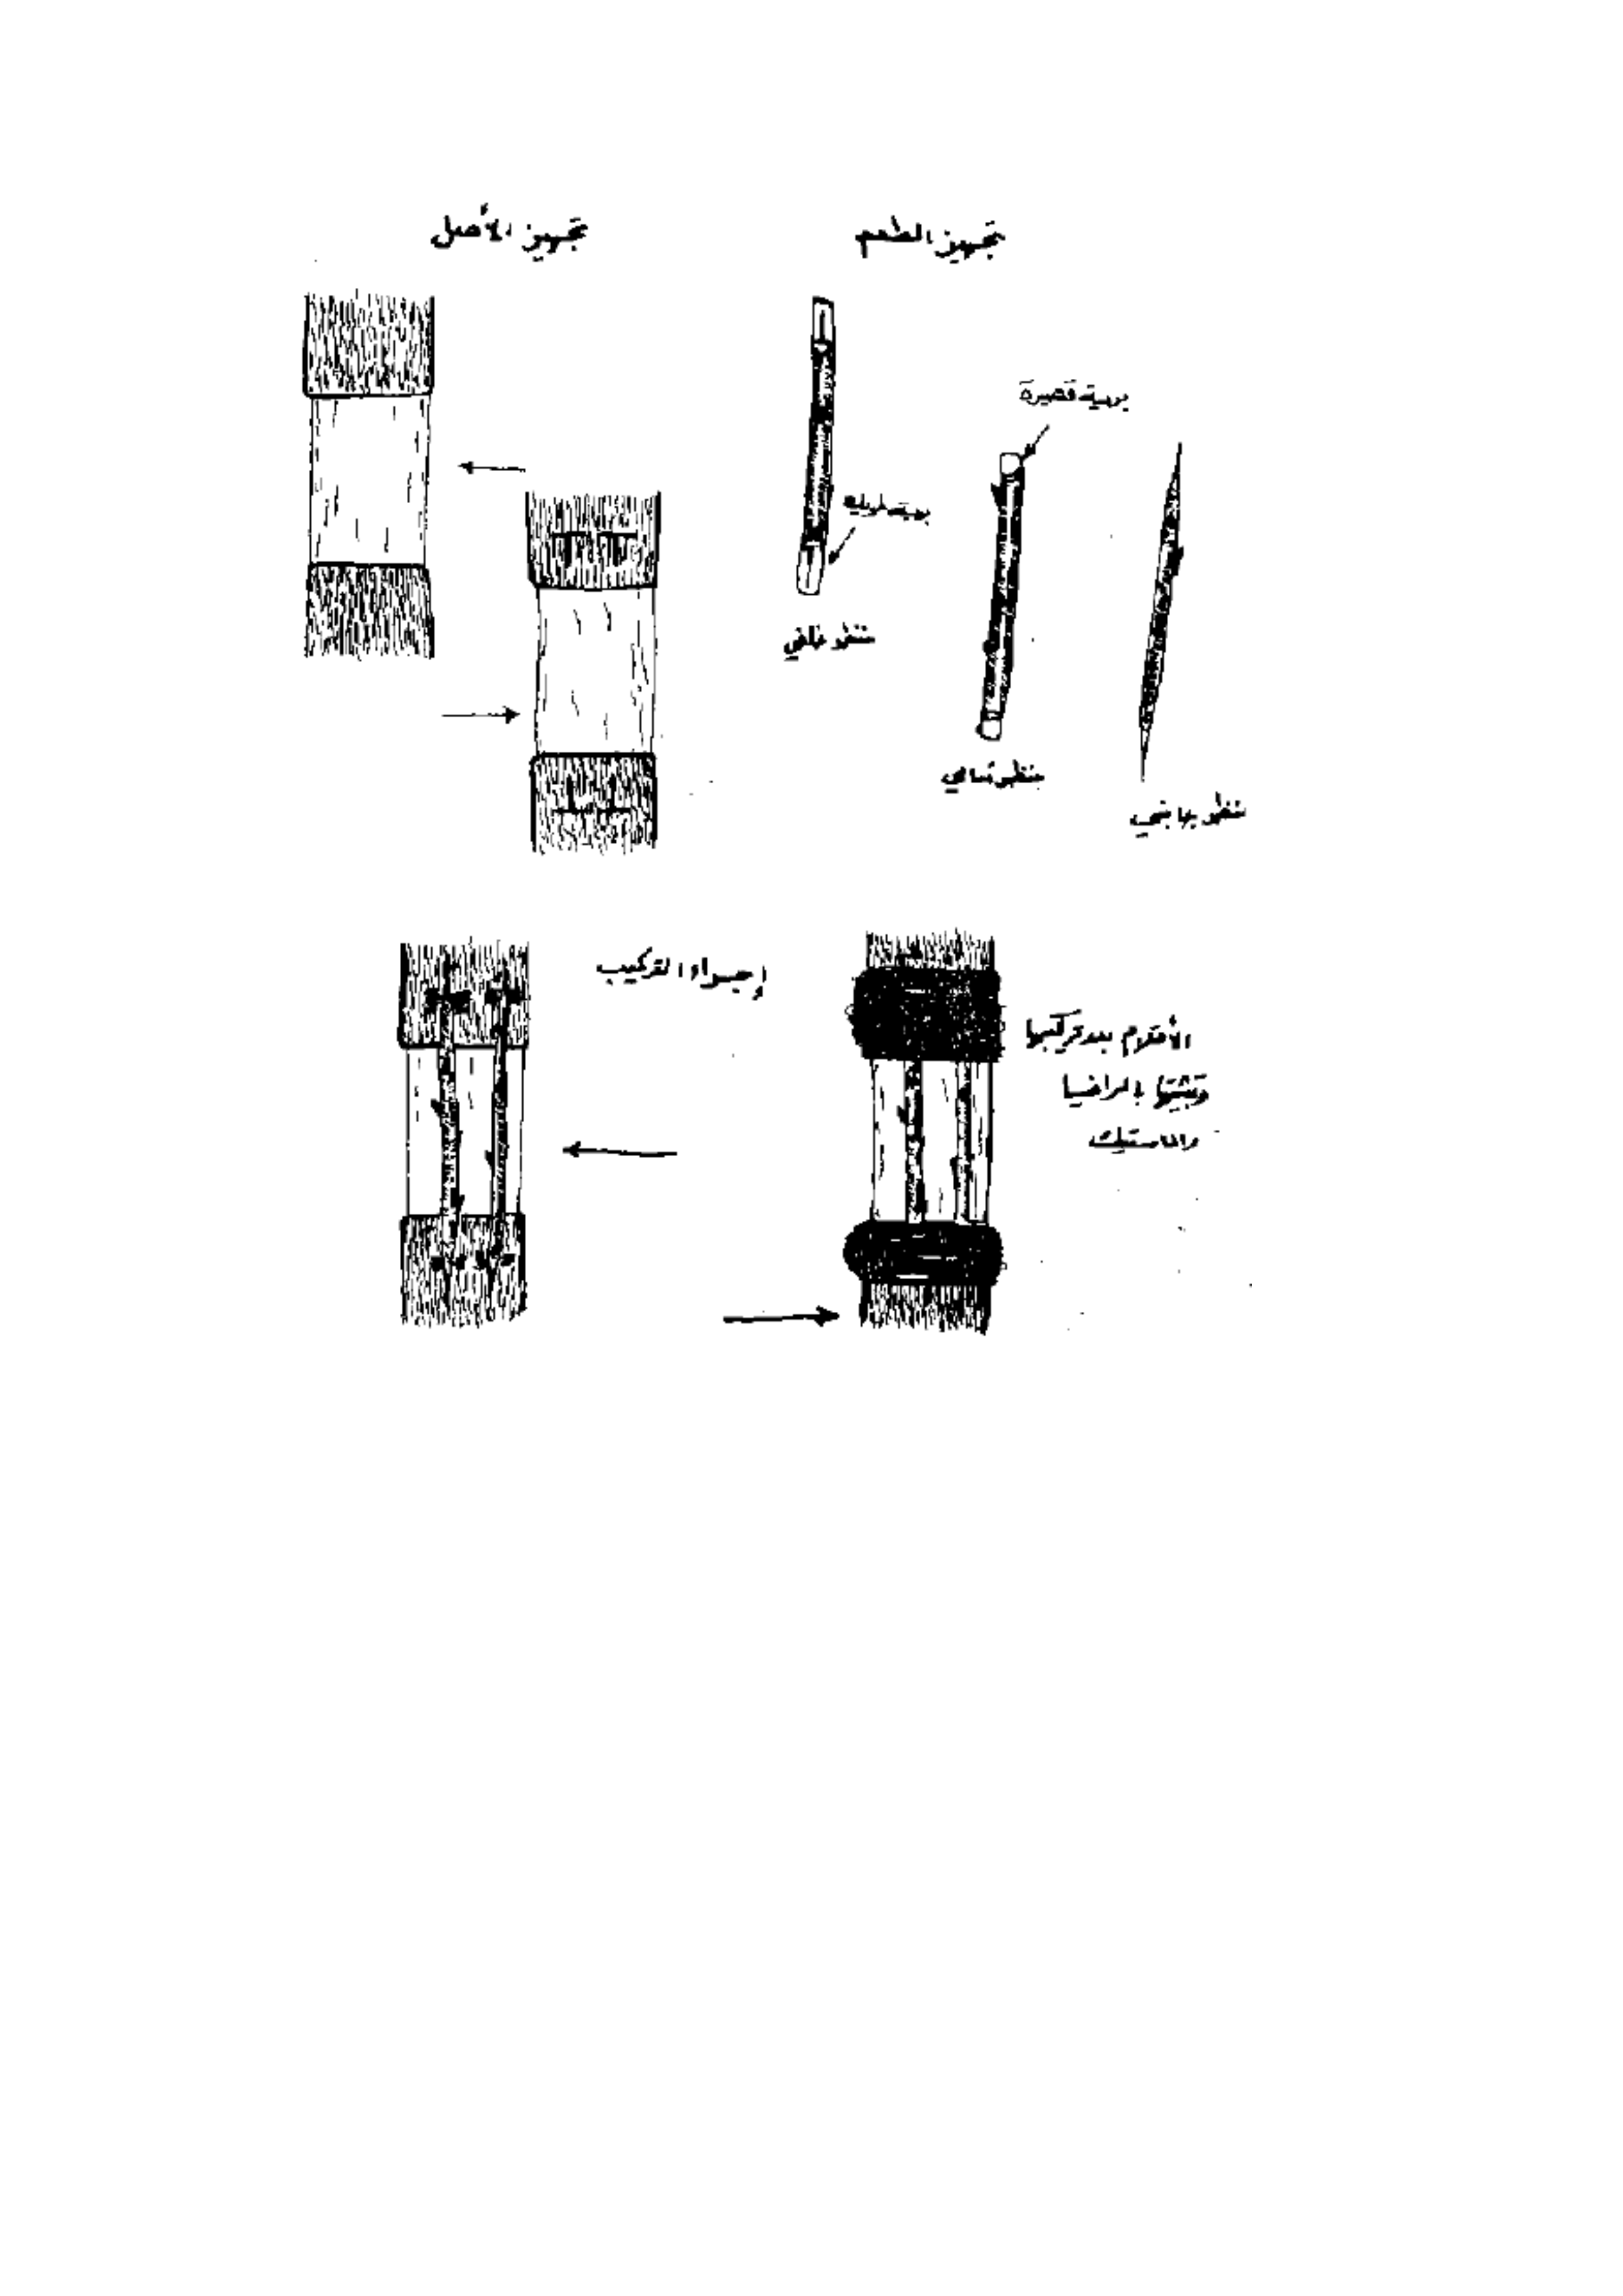 تجهيز الطعم
تجهيز الأصل
برية قصيرة
برية طويلة
منظر خلفي
منظر أمامي
منظر جانبي
إجراء التركيب
الأقلام بعد تركيبها
وتثبيتها بالرافيا
والماستيك